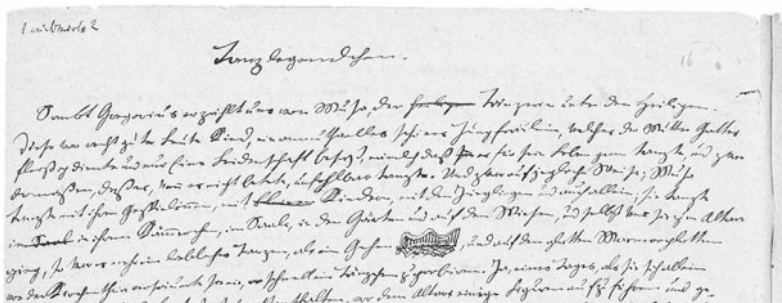 Tanzlegendchen.
16
Sankt Gregorius erzählt uns von Musa, der Tänzerin unter den Heiligen.
Diese war recht guter Leute Kind, ein anmuthvolles Jungfräulein, welches der Mutter Gottes
fleißig diente und nur Eine Leidenschaft besaß, nämlich daß sie gern tanzte, und zwar
dermaßen, daß, wenn er nicht betete, unfehlbar tanzte. Und zwar auf jegliche Weise; Musa
tanzte mit ihren Gespielinnen, mit Kindern, mit den Jünglingen und auch allein; sie tanzte
in ihrem Kämmerchen, im Saale, in den Gärten und auf den Wiesen, und selbst wenn sie zum Altare
ging, so war es mehr ein liebliches Tanzen, als ein Gehen, und auf den glatten Marmorplatten
vor der Kirchenthür versäumte sie nie, schnell ein Tänzchen zu probieren. Ja, eines Tages, als sie sich allein
vor dem Altar einige Figuren aufzuführen